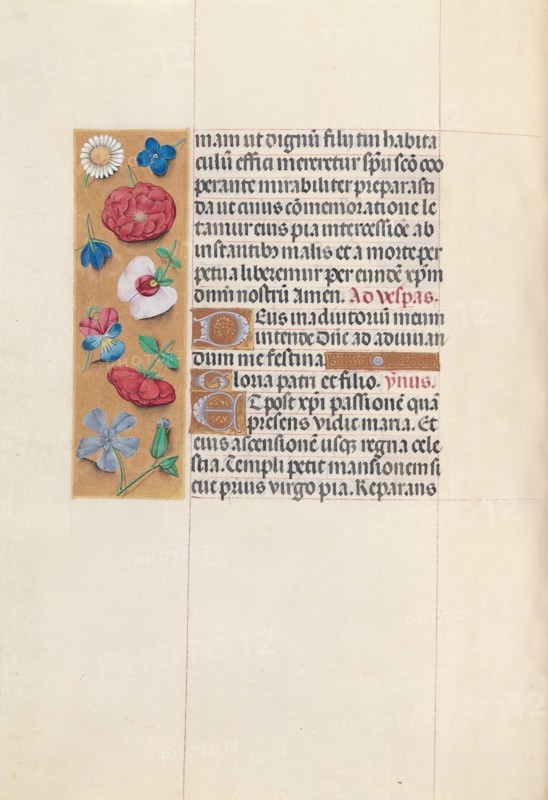 mam ut dignū filij tui habita
culū effici mereretur spū scō coo
perante mirabiliter preparasti
da ut cuius cōmemoratione le
tamur eius pia intercessiōe ab
instantibꝫ malis et a morte per
petua liberemur per eundē xp̄m
dnm̄ nostrū Amen. Ad vesp̄as.
Deus in adiutoriū meum
intende Dn̄e ad adiuuan
dum me festina
Gloria patri et filio. ẏmnus.
Et post xp̄i passionē quā
presens vidit maria. Et
eius ascensionē usqꝫ regna cele
stia. Templi petit mansionem si
cut prius virgo pia. Reparans